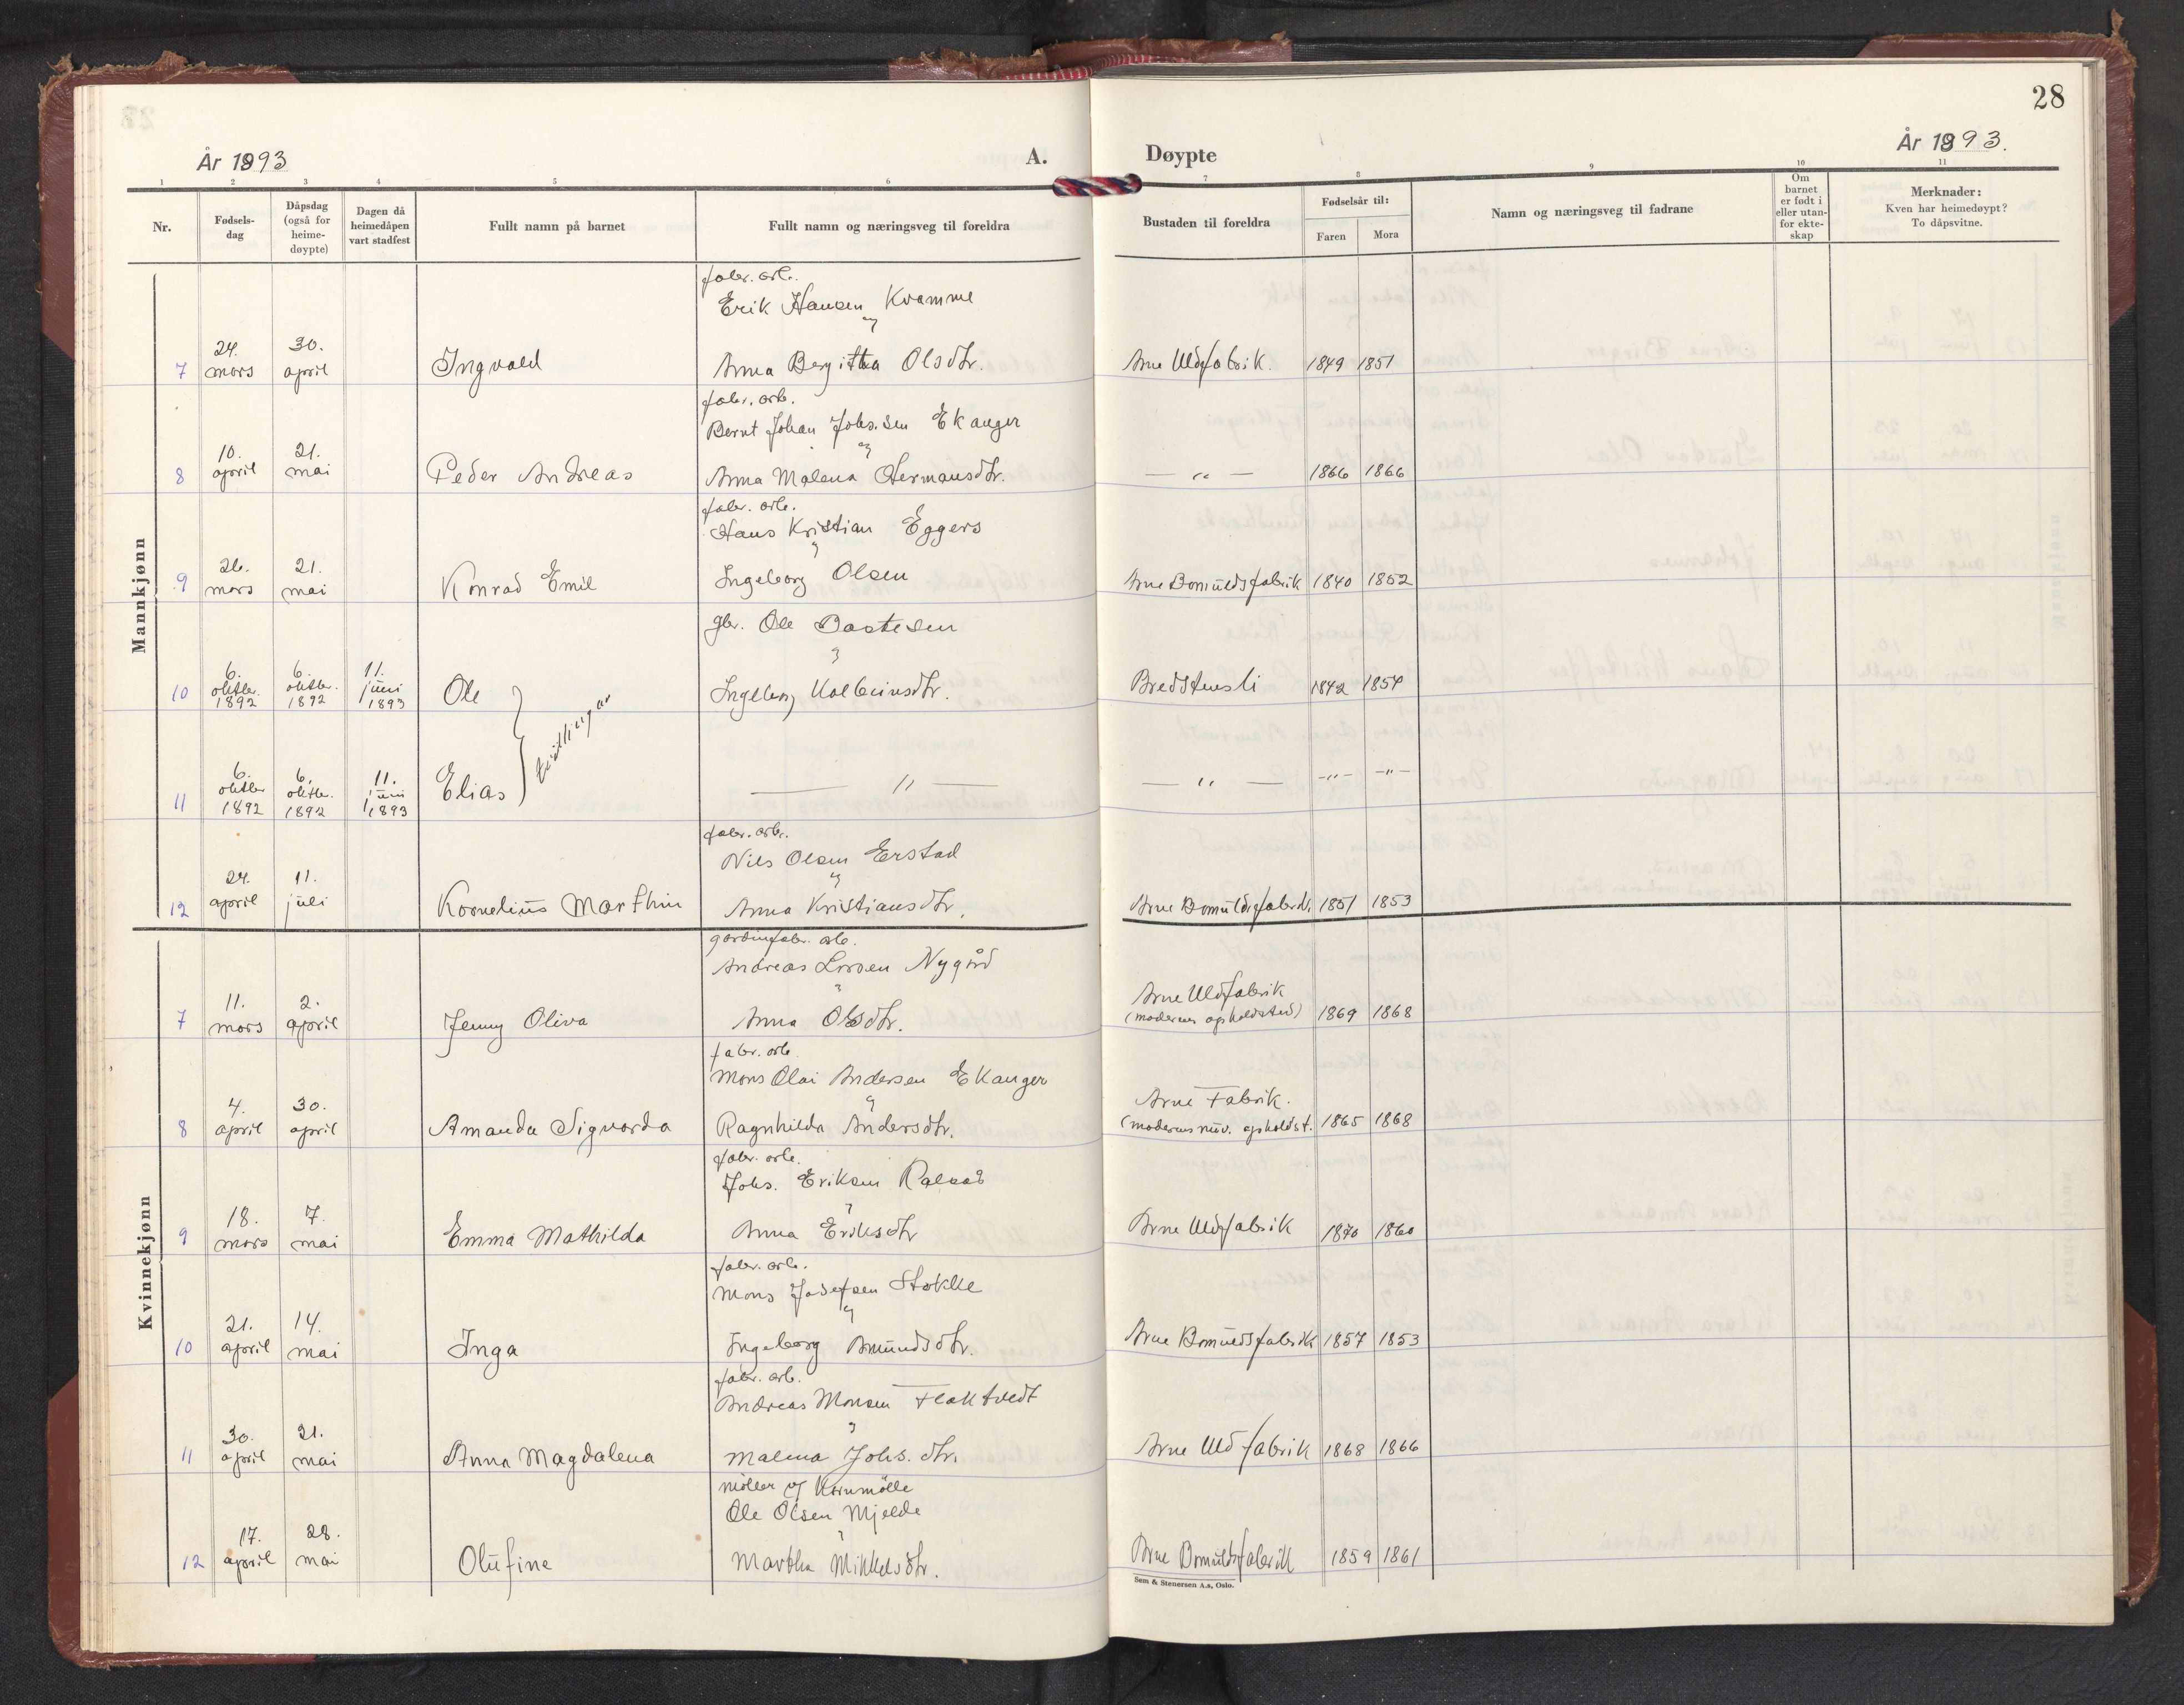 28
År 1893
A.
Døypte
År 1893.
1 2 3 4 5 6 7 8 9 10 11
Nr.
Fødsels-
dag
Dåpsdag
(også for
heime-
døypte)
Dagen då
heimedåpen
vart stadfest
Fullt namn på barnet
Fullt namn og næringsveg til foreldra
Bustaden til foreldra
Fødselsår til:
Faren Mora
Namn og næringsveg til fadrane
Om
barnet
er født i
eller utan-
for ekte-
skap
Merknader:
Kven har heimedøypt?
To dåpsvitne.
Mannkjønn
fabr. arb.
Erik Hansen Kvamme
og
24. 30.
7 mars april Ingvald Anna Bergitha Olsdtr. Arne Uldfabrik. 1849 1851
fabr. arb.
Bernt Johan Johs.sen Ekanger
og
10. 21.
8 april mai Peder Andreas Anna Malena Hermansdtr. — " — 1866 1866
fabr. arb.
Hans Kristian Eggers
og
26. 21.
9 mars mai Konrad Emil Ingeborg Olsen Arne Bomuldsfabrik 1840 1852
gbr. Ole Baste sen
og
6. 6. 11.
10 oktbr. oktbr. juni Ole Ingeborg Kolbeinsdtr. Bredstensli 1842 1854
1892 1892 1893
tvillingar
6. 6. 11.
oktbr oktbr. juni
11 1892 1892 1893 Elias — " — — " — -"- -"-
fabr. arb.
Nils Olsen Erstad
og
24. 11.
12 april juli Kornelius Marthin Anna Kristiansdtr. Arne Bomuldsfabrk. 1851 1853
Kvinnekjønn
gardinfabr. arb.
Andreas Larsen Nygård
og
11. 2. Arne Uldfabrik
7 mars april Jenny Oliva Anna Olsdtr. (moderens opholdsted) 1869 1868
fabr. arb.
Mons Olai Andersen Ekanger
og
4. 30. Arne Fabrik.
8 april april Amanda Sigvarda Ragnhilda Andersdtr. (moderens nuv. opholdst. 1865 1868
fabr. arb.
Johs. Eriksen
og
18. 7.
9 mars mai Emma Mathilda Anna Eriksdtr Arne Uldfabrik 1870 1860
fabr. arb.
Mons Josefsen Stokke
og
21. 14.
10 april mai Inga Ingeborg Amundsdtr. Arne Bomuldsfabrik 1857 1853
fabr. arb.
Andreas Monsen Flaktvedt
og
30. 21.
11 april mai Anna Magdalena Malena Johs. dtr. Arne Uldfabrik 1868 1866
møller og Kornmølle
Ole Olsen Mjelde
og
17. 28.
12 april mai Olufine Martha Mikkelsdtr. Arne Bomuldsfabrik 1859 1861
Sem & Stenersen A.s, Oslo.